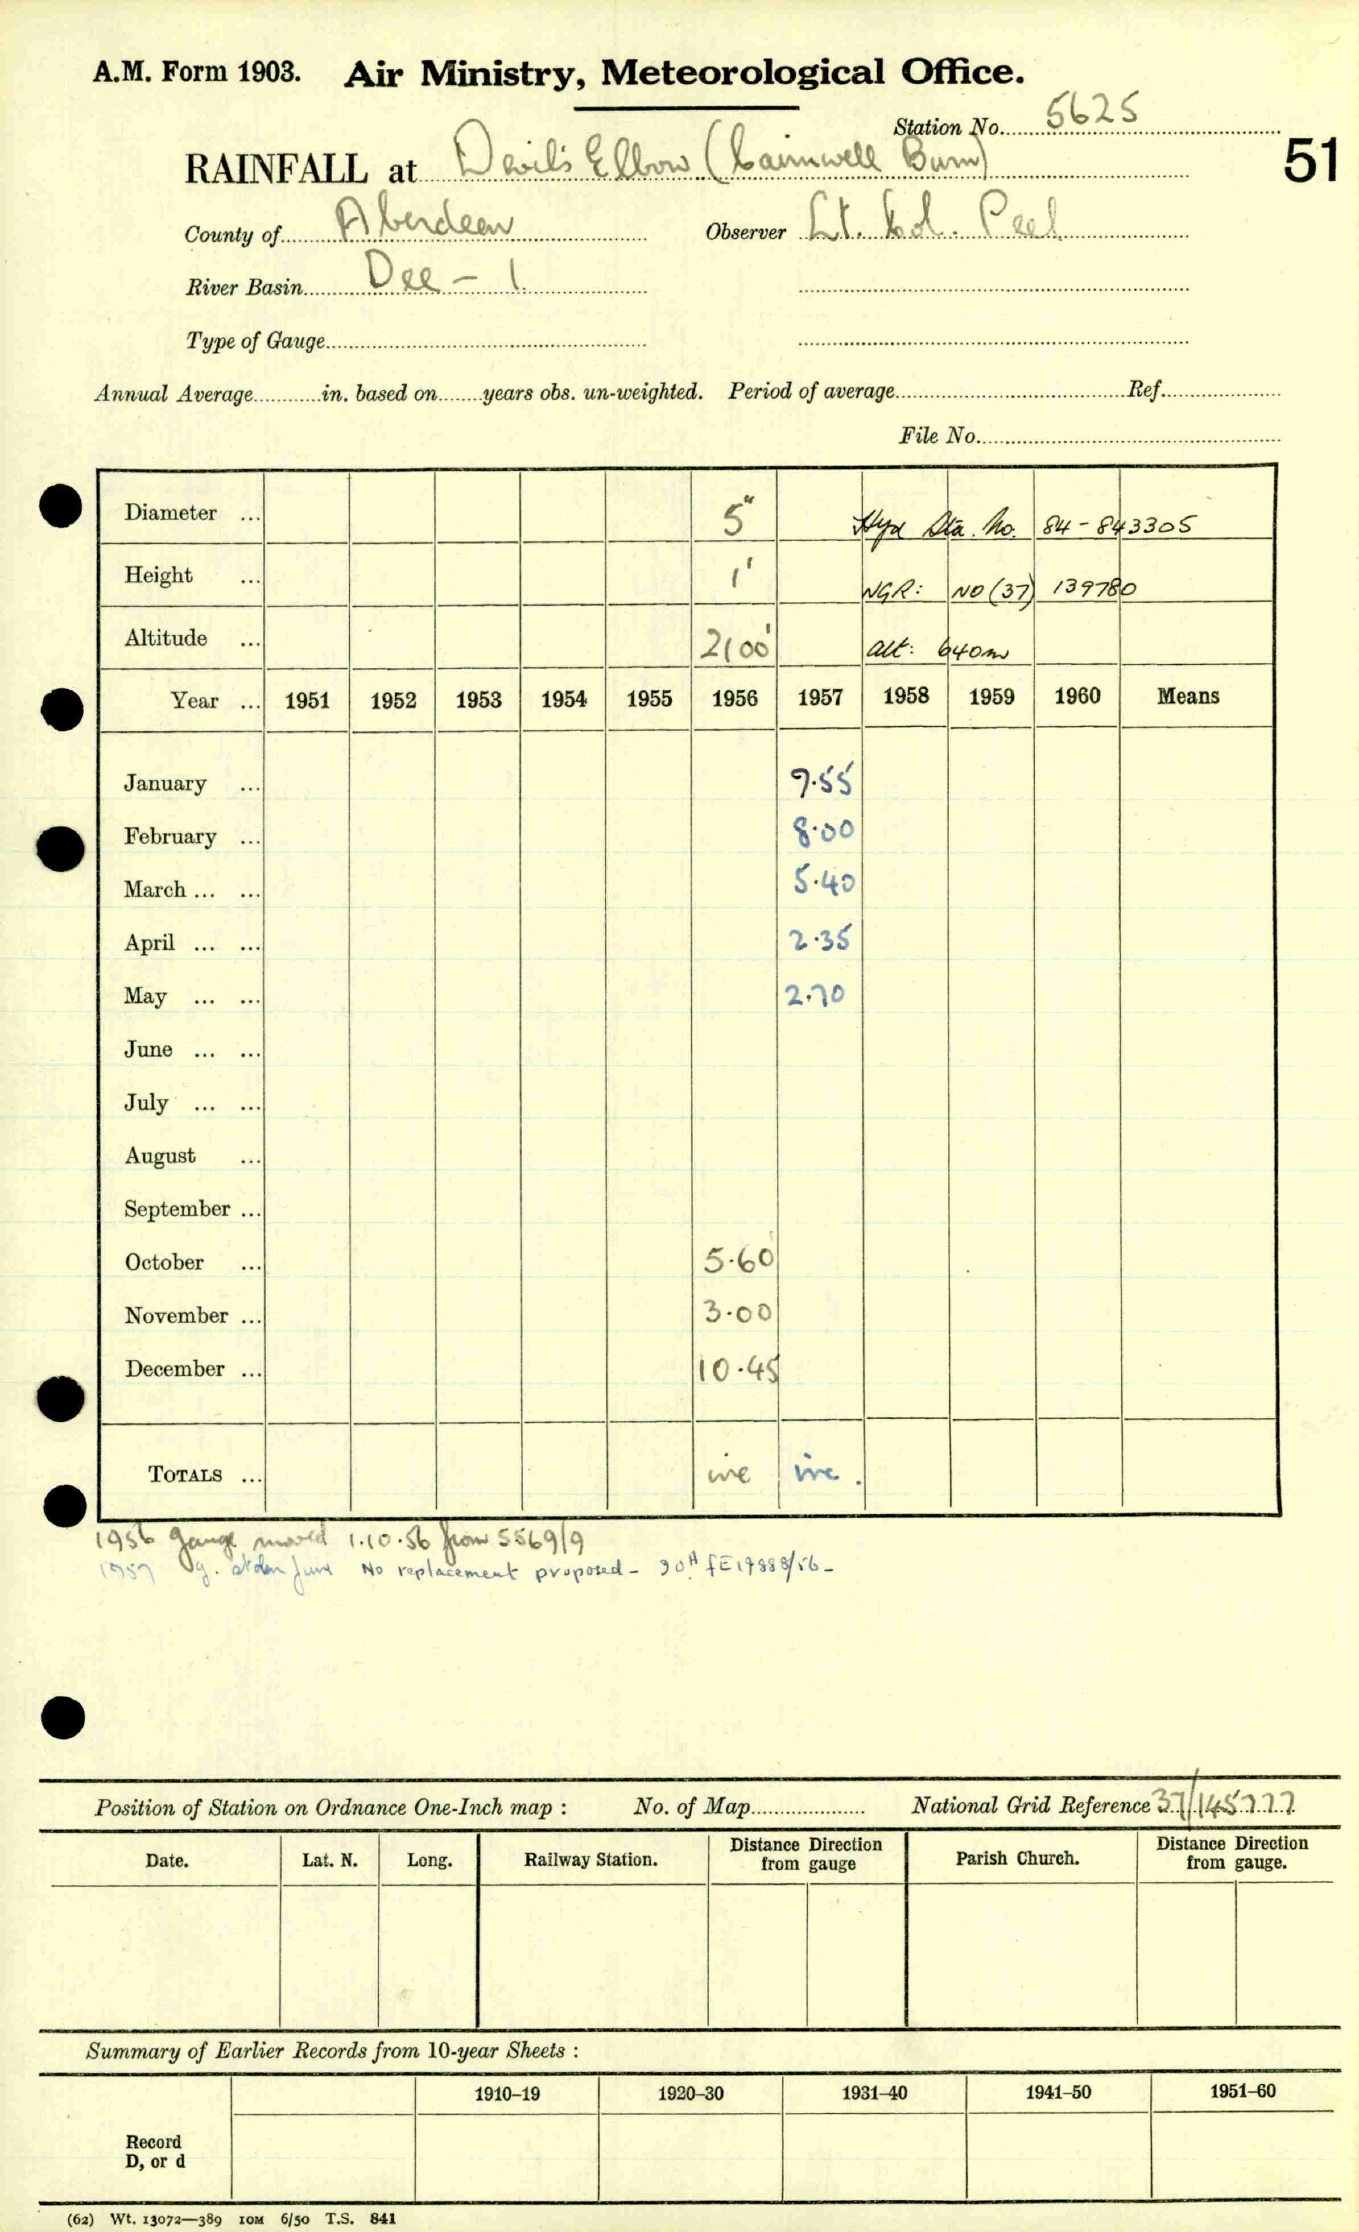 A.M. Form 1903. Air Ministry, Meteorological Office.
Station No. 5625
RAINFALL at Devil's Elbow (Cairnwell Burn)
51
County of Aberdeen Observer Lt. Col. Peel
River Basin Dee - 1
Type of Gauge
Annual Average in. based on years obs. un-weighted. Period of average Ref.
File No.
Diameter ... 5" Hyd Sta. No. 84-843305
Height ... 1' NGR: NO(37) 139780
Altitude ... 2100' alt: 640m
Year ... 1951 1952 1953 1954 1955 1956 1957 1958 1959 1960 Means
January ... 9.55
February ... 8.00
March ... ... 5.40
April ... ... 2.35
May ... ... 2.70
June ... ...
July ... ...
August ...
September ...
October ... 5.60
November ... 3.00
December ... 10.45
TOTALS ... inc inc.
1956 gauge moved 1.10.56 from 5569/9
1957 g. stolen June No replacement proposed -
Position of Station on Ordnance One-Inch map : No. of Map National Grid Reference 37/145777
Date. Lat. N. Long. Railway Station. Distance Direction from gauge Parish Church. Distance Direction from gauge.
Summary of Earlier Records from 10-year Sheets :
1910–19 1920–30 1931–40 1941–50 1951–60
Record
D, or d
(62) Wt. 13072—389 10M 6/50 T.S. 841